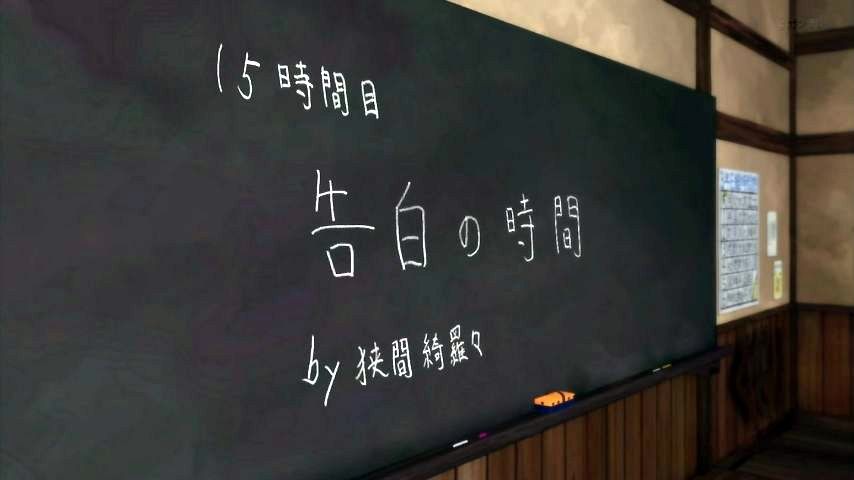 15時間目
告白の時間
by 狭間綺羅々